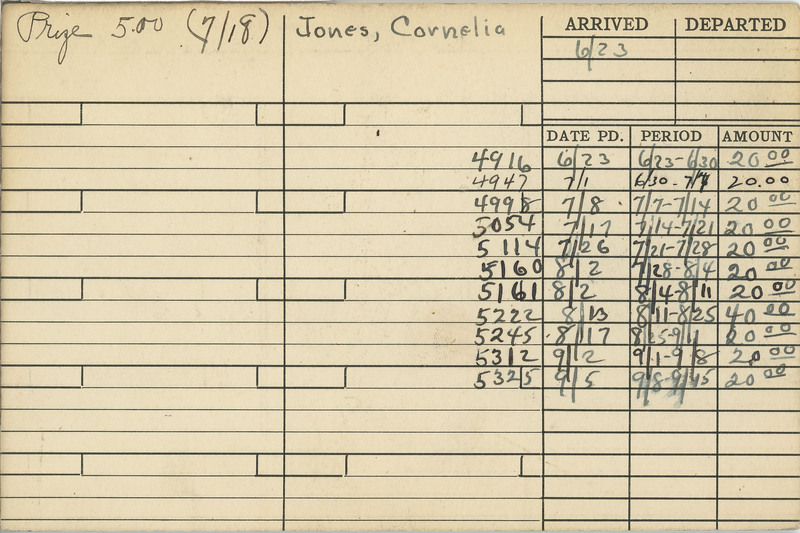 Prize 5.00 (7/18) Jones, Cornelia ARRIVED DEPARTED
6/23
DATE PD. PERIOD AMOUNT
4916 6/23 6/23-6/30 20.00
4947 7/1 6/30-7/7 20.00
4998 7/8 7/7-7/14 20.00
5054 7/17 7/14-7/21 20.00
5114 7/26 7/21-7/28 20.00
5160 8/2 7/28-8/4 20.00
5161 8/2 8/4-8/11 20.00
5222 8/13 8/11-8/25 40.00
5245 8/17 8/25-9/1 20.00
5312 9/2 9/1-9/8 20.00
5325 9/5 9/8-9/15 20.00